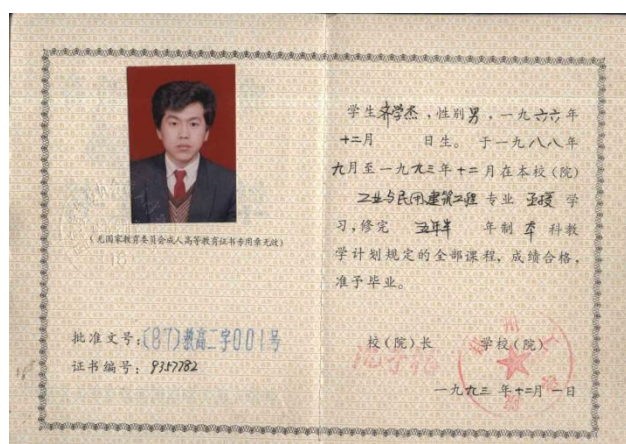 （无国家教育委员会成人高等教育证书专用章无效）
批准文号：（87）教高二字001号
证书编号：9357782
学生齐学杰，性别男，一九六六年
十二月 日生。于一九八八年
九月至一九九三年十二月在本校（院）
工业与民用建筑工程专业 函授 学
习，修完 五年半 年制 本 科教
学计划规定的全部课程，成绩合格，
准予毕业。
校（院）长 学校（院）
一九九三年十二月一日